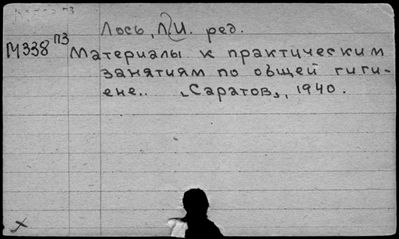 Лось, Л.И. ред.
М338 ПЗ
Материалы к практическим
занятиям по общей гиги-
ене.. "Саратов", 1940.
х